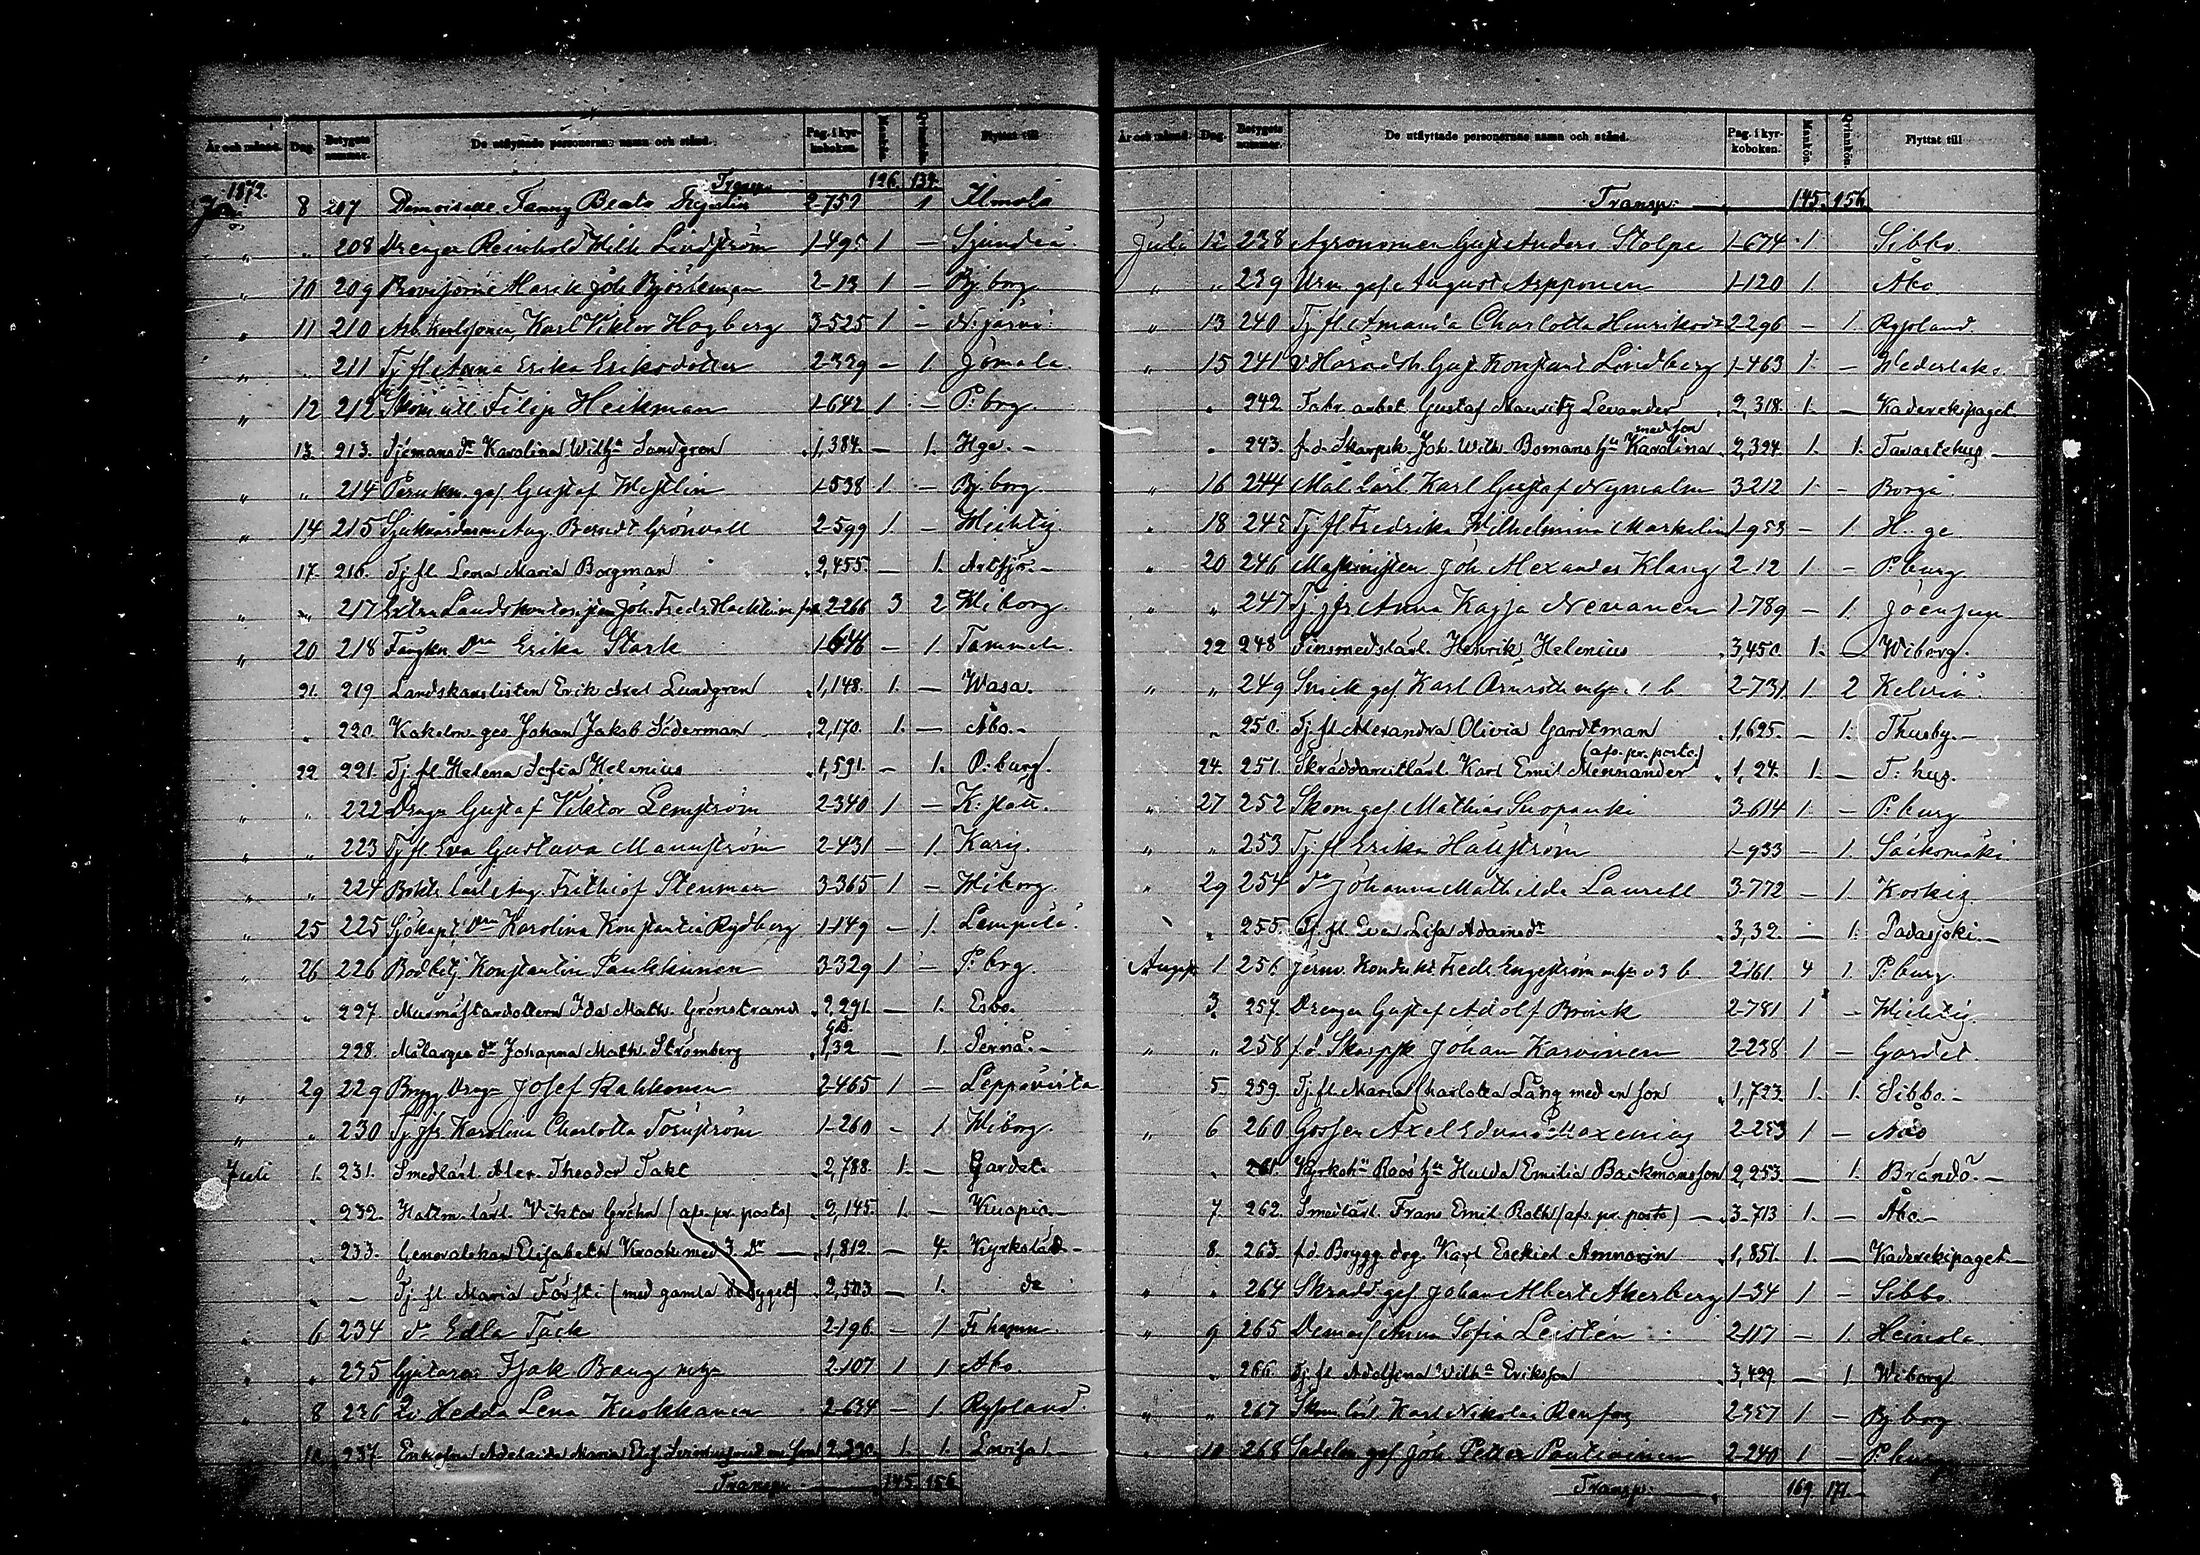 År och månad. Dag. Betygets nummer. De utflyttade personernas namn och stånd. Pag. i kyrkoboken. Mankön. Qvinnkön. Flyttat till
1872. Transp. 126. 134.
8 207 Demoiselle Fanny Beata 2-759 1 Ilmola
" " 208 Drengen Reinhold Wilh Lindström 1-495 1 — Sjundeå
" 10 209 Provisorn Joh Björkman 2-13 1 — Bj. borg
" 11 210 Arb. Karl Viktor Hogberg 3-525 1 — N. järvi
" " 211 Tj fl Anna Erika Eriksdotter 2-339 — 1. Jomala.
" 12 212 Filip Heikman 1-642 1 — P. brg.
13. 213. Sjömansdr Karolina Wilhna Sandgren 1,384. — 1. Hge. —
" " 214 gef. Gustaf Westlin 1-538 1. — Bj. borg.
" 14 215 Aug. Berndt Grönvall 2-599 1. — Wichtis
17. 216. Tj fl Lena Maria Borgman 2,455. — 1. Artsjö. —
" " 217 Extra Landskontoristen Joh. Fredr. 2-266 3 2 Wiborg.
" 20 218 Fångkn. Dra Erika Stark 1-646 — 1 Tammela
21. 219 Landskanslisten Erik Axel Lundgren 1,148. 1. — Wasa.
" 220. Kakelm. ges Johan Jakob Söderman 2,170. 1. — Åbo. —
22 221. Tj. fl. Helena Sofia Helenius 1,591. — 1. P. burg.
" " 222 Dreng Gustaf Viktor Lemström 2-340 1 — K. slätt.
" " 223 Tj fl. Eva Gustava Mannström 2-431 — 1. Karis.
" " 224 Aug. Frithiof Stenman 3-365 1 — Wiborg.
" 25 225 Sjökapt. Dra Karolina Konstantia Rydberg 1-149 — 1. Lempälä.
" 26 226 Bodbetj Konstantin Paukkunen 3-329 1 — P. brg.
" 227. Murmästardottern Ida Math. Grönstrand 2,291. — 1. Esbo.
228. Målarges dr Johanna Math. Strömberg 1,32 — 1. Pernå. —
" 29 229 Brygg. Dreng Josef Rahkonen 2-465 1 — Leppävirta
" " 230 Tj jfr Karolina Charlotta Törnström 1-260 — 1 Wiborg.
Juli 1. 231. Smedlärl. Alex. Theodor Takt 2,788. 1. — Gardet.
" 232. Hattm. lärl. Viktor Gröhn (afs. pr. posto) 2,145. 1. — Kuopio.
" 233. Generalskan Elisabeth Krook med 3 dr — 1,812. — 4. Kyrkslätt —
" — Tj. fl. Maria Försti (med gamla betyget) 2,503 — 1. do
" 6 234 do Edla Tack 2-196. — 1 Fr hamn
" " 235 Isak Bang 2-107 1 1 Åbo.
" 8 236 Hedda Lena Kuokkanen 2-634 — 1 Ryssland.
10. 237. Adelaide Maria med en son 2-230. 1. 1. Lovisa. —
Transp: — 145. 156.
År och månad. Dag. Betygets nummer. De utflyttade personernas namn och stånd. Pag. i kyrkoboken. Mankön. Qvinnkön. Flyttat till
Transp: — 145. 156.
Juli 12 238 Agronomen Gust Anders Stolpe 1-674 1 Sibbo.
" " 239 Urm. gef. August Aspponen 1-120 1. Åbo
" 13 240 Tj fl. Amanda Charlotta Henriksdr 2-296 — 1. Ryssland.
" 15 241 V. Häradsh. Gust Konstant Lindberg 1-463 1. — Wederlaks
" 242. Fabr. arbet. Gustaf Mauritz Levander 2,318. 1. — Kaderskipaget
" 243. f.d. Skarpsk. Joh. Wilh. Bomans hu Karolina med son 2,394 1. 1. Tavastehus —
" 16 244 Mål. lärl. Karl Gustaf Nymalm 3-212 1 — Borgå
" 18 245 Tj. fl. Fredrika Wilhelmina Markelin 1-953 — 1. H. ge
" 20 246 Maskinisten Joh. Alexander Klang 2-12 1 — P. burg
" " 247 Tj. jfr. Anna Kajsa Nevanen 1-789 — 1. Joensuu
22 248 Finsmedslärl. Henrik Helenius 3,450. 1. — Wiborg.
" " 249 Snik gef. Karl 2-731 1 2 Kelviå
" 250. Tj. fl. Alexandra Olivia Gardtman 1,625. — 1. Thusby. —
24. 251. Skräddareitlärl. Karl Emil Mennander (afs. pr. posto) 1,24. 1. — T: hus.
" 27 252 Skom. gef Mathias Suopanki 3-614 1. — P. burg
" " 253 Tj. fl Erika Hällström 1-933 — 1. Sääksmäki
" 29 254 do Johanna Mathilda Laurell 3-772 — 1. Koskis.
" 255. Tj. fl. Eva Lisa Adamsdr 3,32. — 1. Padasjoki. —
Augusti 1 256 Jernv. Kondukt. Fredr. Engeström m. hu o 3 b 2-161 4 1. P. burg
3. 257. Drengen Gustaf Adolf Bronk 2-781 1 — Wichtis.
" " 258 f.d. Skarpsk Johan Karvinen 2-238 1 — Gardet.
5. 259. Tj. fl. Maria Charlotta Lång med en son 1,723. 1. 1. Sibbo. —
" 6 260 Gossen Axel Edvard Maxenius 2-253 1 — Åbo
" 261. Kyrkoh. Roos hu Hulda Emilia Backmansson 2,253. — 1. Brändö. —
7. 262. Smedlärl. Frans Emil Roth (afs. pr. posto) — 3-713 1. — Åbo —
8. 263. f.d. Brygg. drg. Karl Esekiel Ammorin 1,851. 1. — Kaderskipaget. —
" " 264 Skradd. gef. Johan Albert Akerberg 1-34 1 — Sibbo.
" 9 265 Demois. Anna Sofia Leistén 2-117 — 1. Heinola.
" 266. Tj. fl. Adolfina Wilhna Eriksson 3,499. — 1. Wiborg
" " 267 Skom. lärl. Karl Nikolai Renfors 2-357 1 — Bj. borg
10 268 Sadelm. gef. Joh. Petter Pantivinen 2-240 1 — P. burg
Transp: — 169 171. —